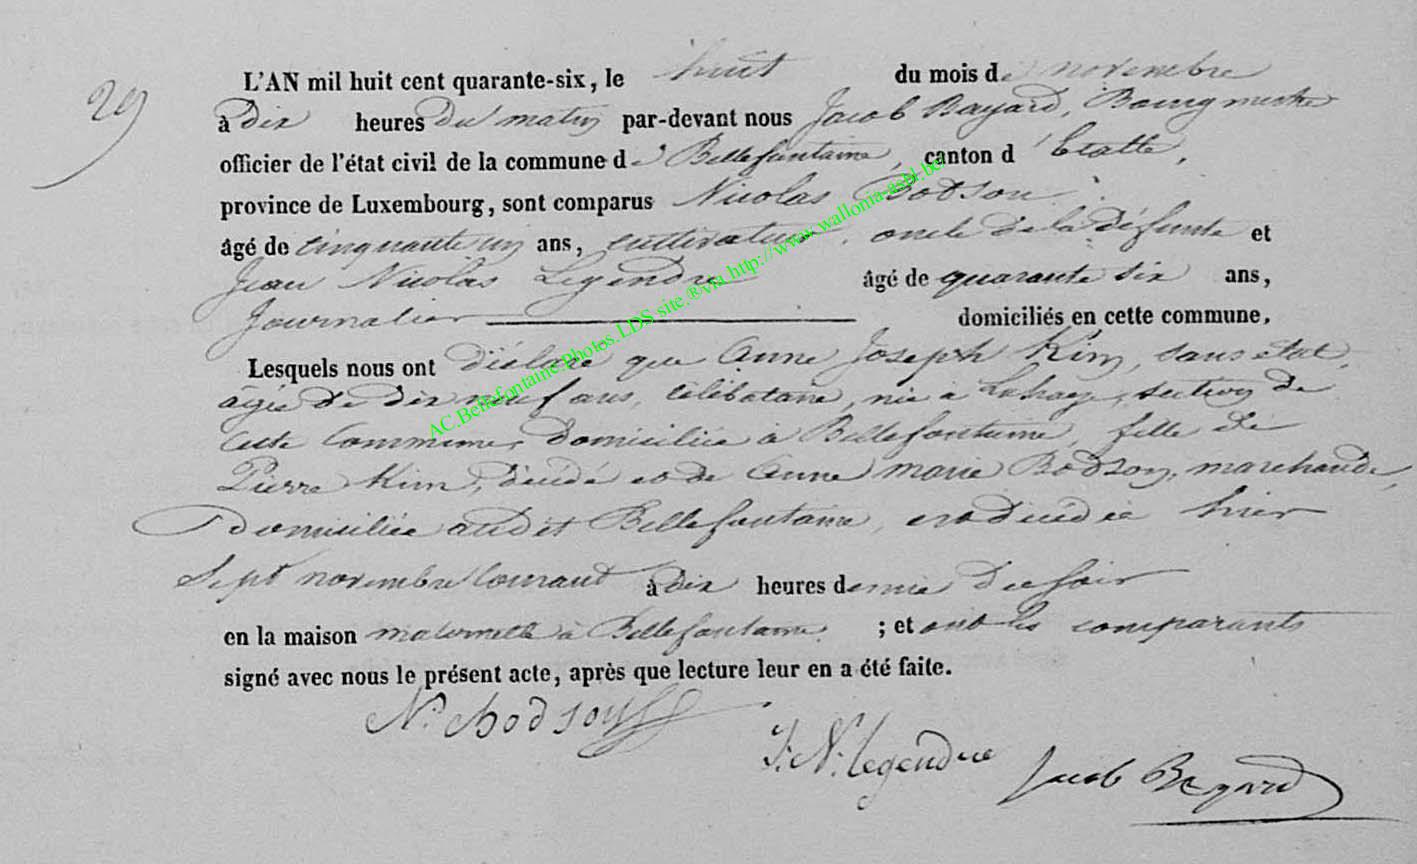 29
L'AN mil huit cent quarante-six, le huit du mois de novembre
à dix heures du matin par-devant nous Jacob Bayard, Bourgmestre
officier de l'état civil de la commune de Bellefontaine, canton d'Etalle,
province de Luxembourg, sont comparus Nicolas Bodson
âgé de cinquante un ans, cultivateur, oncle de la défunte et
Jean Nicolas Legendre âgé de quarante six ans,
Journalier domiciliés en cette commune.
Lesquels nous ont déclaré que Anne Joseph Kim, sans état,
âgée de dix neuf ans, célibataire, née à Lahage, section de
cette commune, domiciliée à Bellefontaine, fille de
Pierre Kim, décédé et de Anne Marie Bodson, marchande,
domiciliée audit Bellefontaine, est décédée hier
sept novembre courant à dix heures demie du soir
en la maison maternelle à Bellefontaine ; et ont les comparants
signé avec nous le présent acte, après que lecture leur en a été faite.
N. Bodson
J. N. Legendre
Jacob Bayard
AC.Bellefontaine.Photos.LDS site.®via http://www.wallonia-asbl.be/